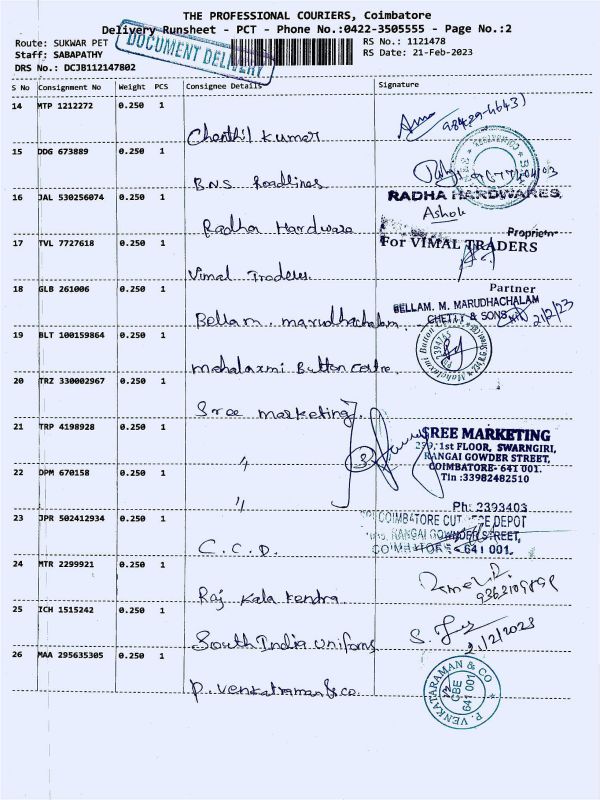 THE PROFESSIONAL COURIERS, Coimbatore
Delivery Runsheet - PCT - Phone No.:0422-3505555 - Page No.:2
Route: SUKWAR PET RS No.: 1121478
Staff: SABAPATHY RS Date: 21-Feb-2023
DRS No.: DCJB112147802
DOCUMENT DELIVERY
S No Consignment No Weight PCS Consignee Details Signature
14 MTP 1212272 0.250 1
Chanthil Kumar
15 DDG 673889 0.250 1
B.N.S Roadlines
16 JAL 530256074 0.250 1 RADHA HARDWARES,
Ashok
Radha Hardware Proprietor
17 TVL 7727618 0.250 1 For VIMAL TRADERS
Vimal Traders.
Partner
18 GLB 261006 0.250 1
BELLAM. M. MARUDHACHALAM
CHETTY & SONS 21/2/23
Bellam. marudhachalam
19 BLT 100159864 0.250 1
mahalaxmi Button centre.
20 TRZ 330002967 0.250 1
Sree marketing
21 TRP 4198928 0.250 1 SREE MARKETING
1st FLOOR, SWARNGIRI,
RANGAI GOWDER STREET,
COIMBATORE- 641 001.
Tin :33982482510
"
3
22 DPM 670158 0.250 1
"
Ph: 2393403
23 JPR 502412934 0.250 1 COIMBATORE CUT PIECE DEPOT
RANGAI GOWDER STREET,
COIMBATORE - 641 001.
C.C.D.
24 MTR 2299921 0.250 1
Raj Kala Kendra
25 ICH 1515242 0.250 1
South India uniforms 21/2/2023
26 MAA 295635305 0.250 1
P. Venkatraman & co.
P. VENKATARAMAN & CO
CBE
641 001